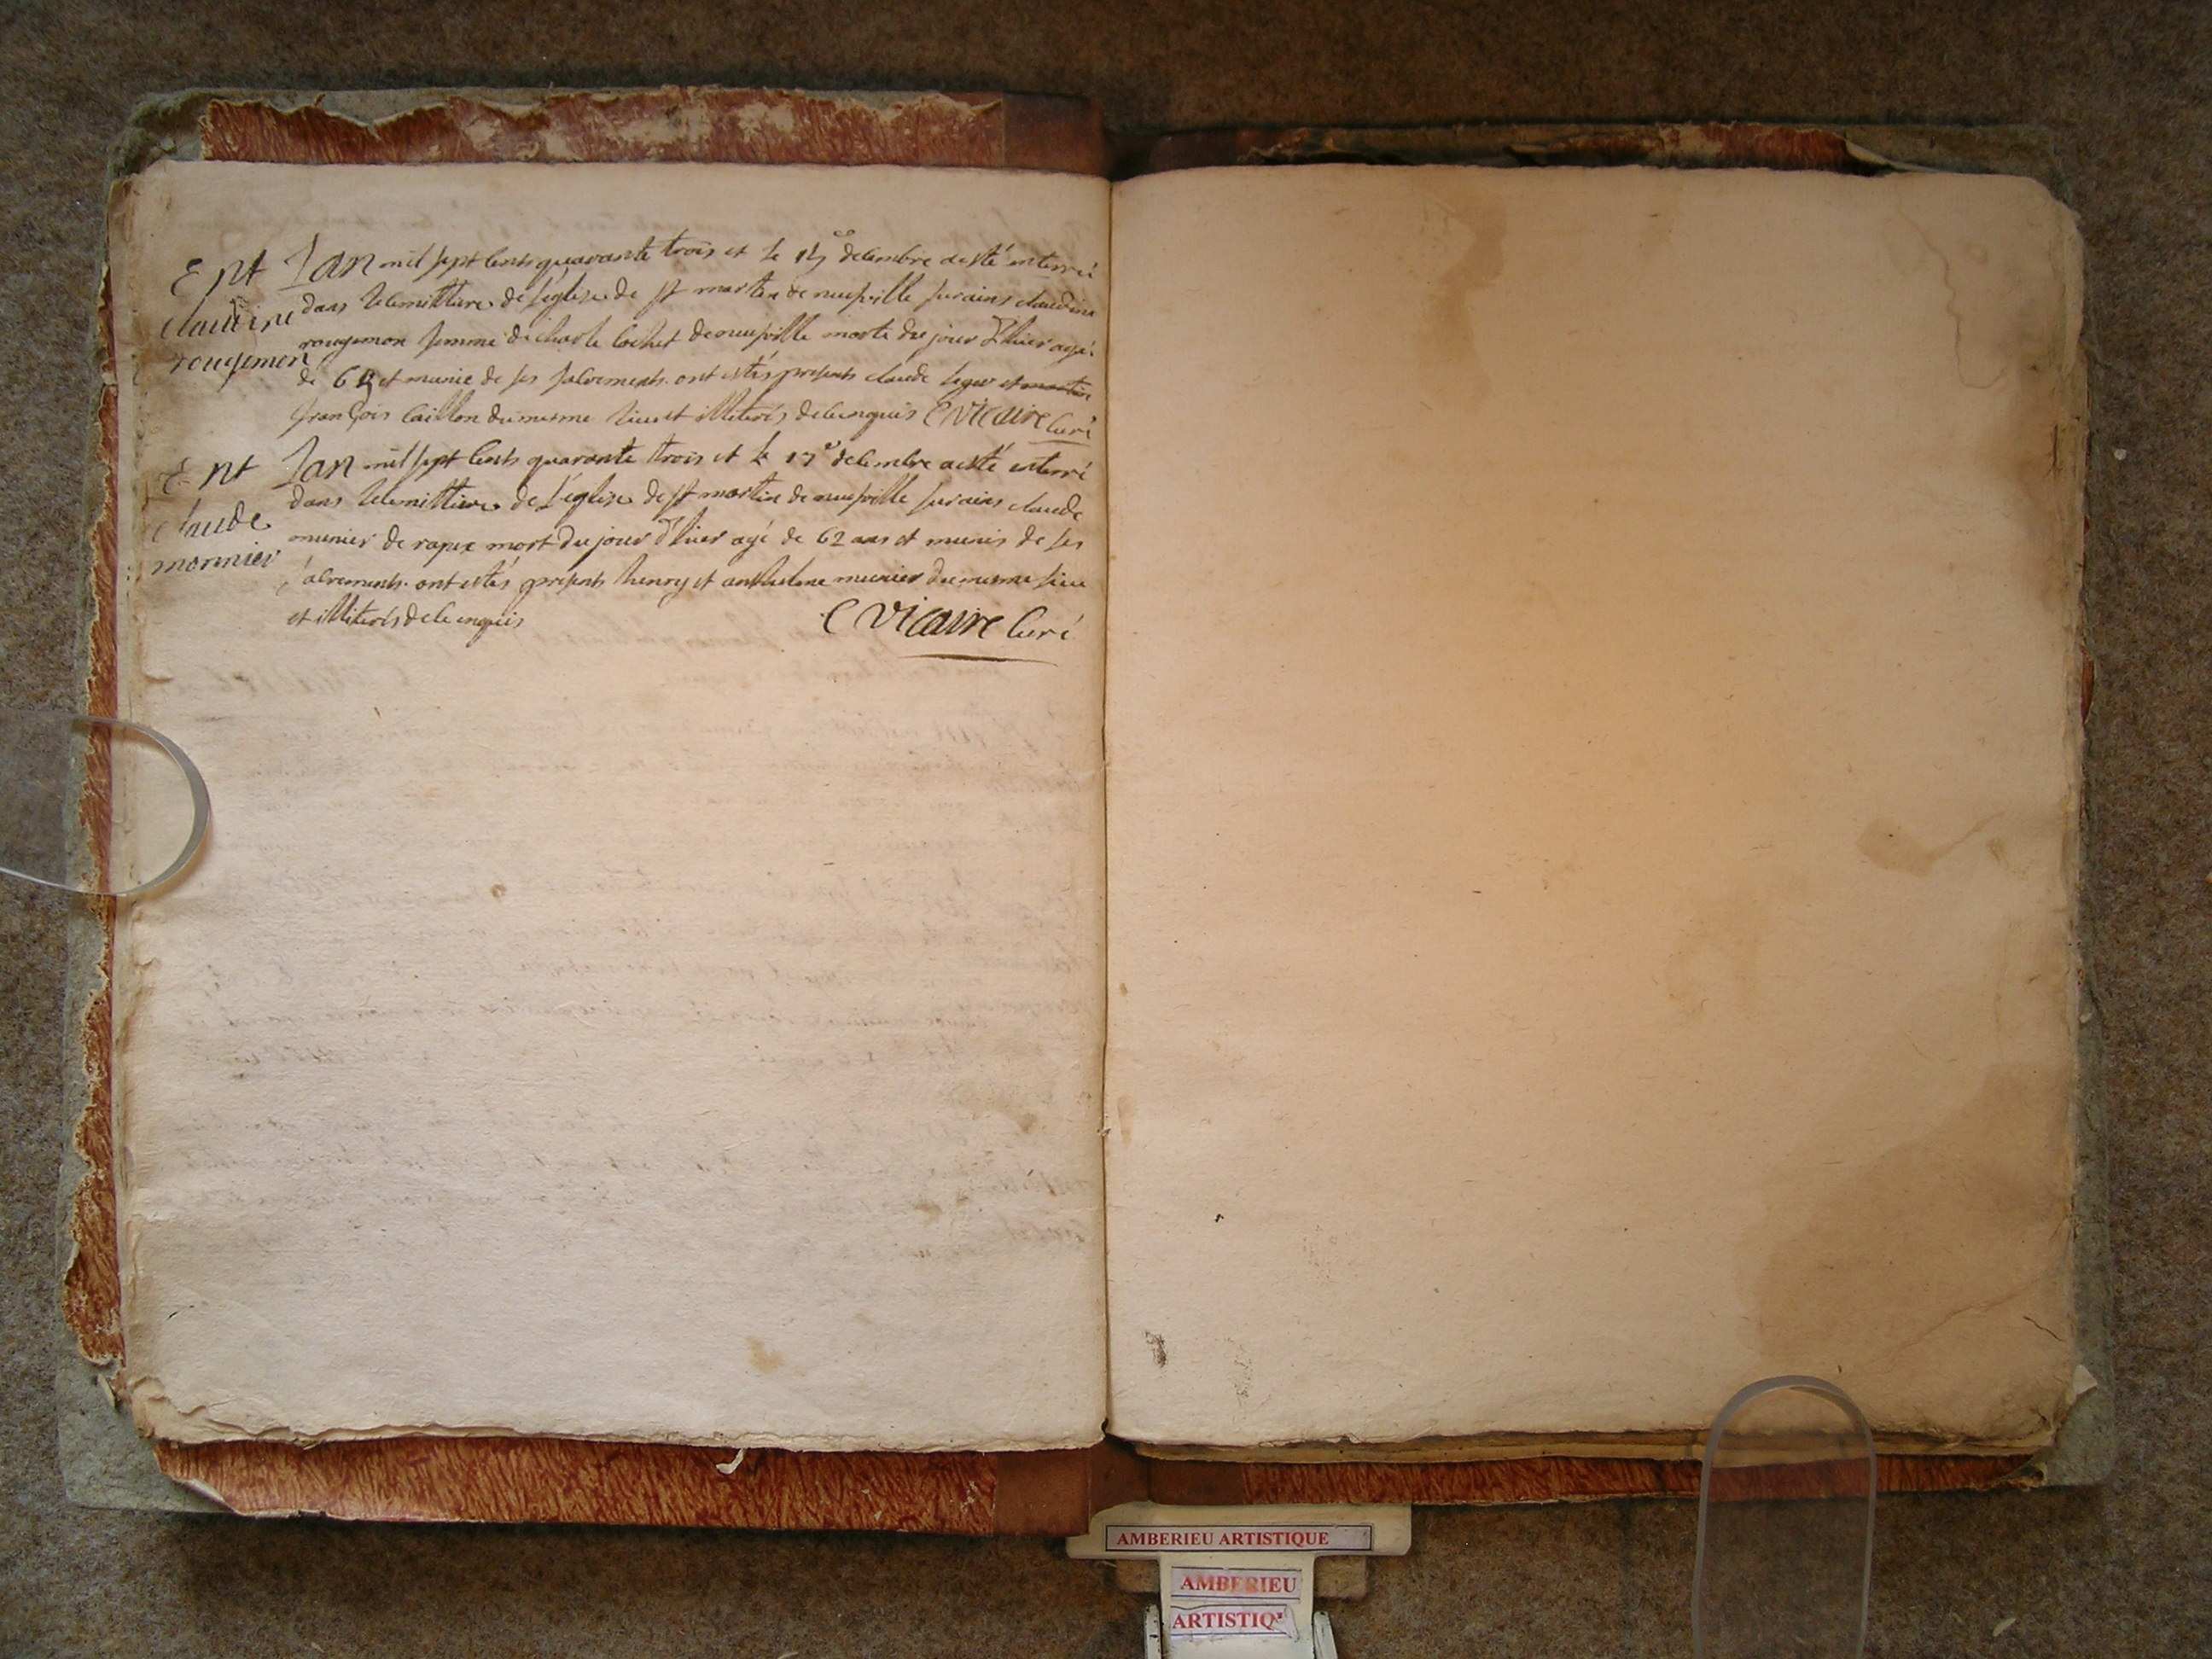 Ent
claudine
rougemon
Lan mil sept cents quarante trois et le decembre a esté enterré
dans le cemittiere de l'église de st martin de neufville sur ains claudine
rougemon femme de charle cochet de neufville morte du jour d'hier agé
de et munie de ses sacrements. ont estés presents claude leger et martin
françois caillon du mesme lieu et illiterés de ce enquis C Vicaire Curé
Ent
claude
monnier
Lan mil sept cents quarante trois et le 17e decembre a esté enterré
dans le cemittiere de l'église de st martin de neufville sur ains claude
munier de rapex mort du jour d'hier agé de 62 ans et munis de ses
sacrements. ont estés presents henry et anthelme munier du mesme lieu
et illiterés de ce enquis C Vicaire Curé
AMBERIEU ARTISTIQUE
AMBERIEU
ARTISTIQ